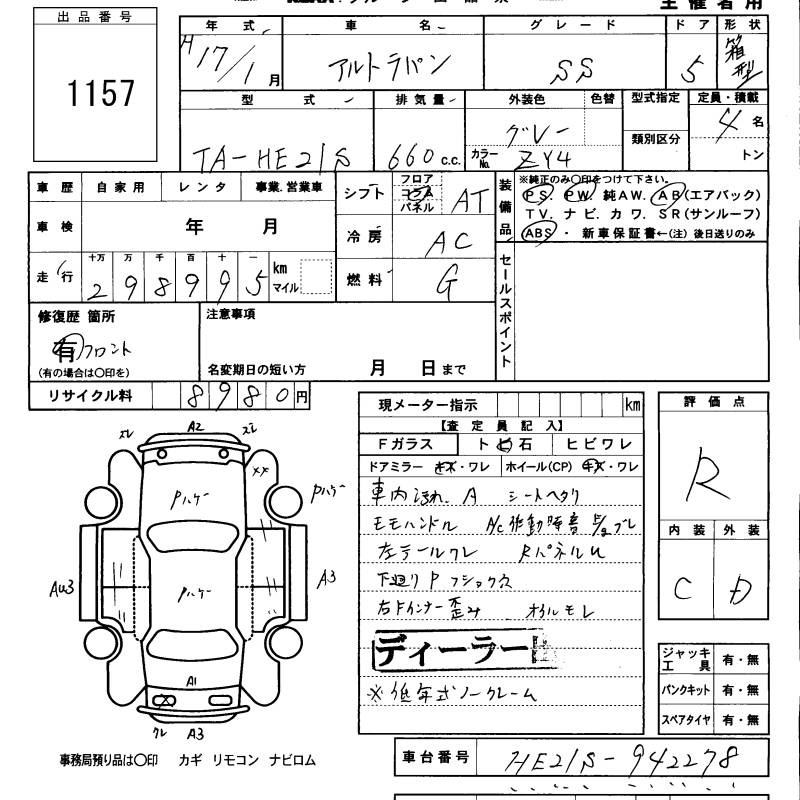 主催者用
出品番号
1157
年式 車名 グレード ドア 形状
H17/1月 アルトラパン SS 5 箱型
型式 排気量 外装色 色替 型式指定 定員・積載
TA-HE21S 660c.c. グレー 類別区分 4名
カラーNo. ZY4 トン
車歴 自家用 レンタ 事業.営業車
車検 年 月
走行 十万 万 千 百 十 一
298995 km マイル
シフト フロア コラム パネル AT
冷房 AC
燃料 G
装備品 ※純正のみ〇印をつけて下さい。
PS. PW. 純AW. AB(エアバック)
TV. ナビ. カワ. SR(サンルーフ)
ABS・新車保証書←(注)後日送りのみ
セールスポイント
修復歴 箇所
有 フロント
(有の場合は〇印を)
注意事項
名変期日の短い方 月 日まで
リサイクル料 8980円
現メーター指示 km
【査定員記入】
Fガラス トビ石 ヒビワレ
ドアミラー キズ・ワレ ホイール(CP) キズ・ワレ
車内汚れ. A シートヘタリ
モモハンドル A/C作動時音
左テールワレ RパネルU
下廻りP
右Fインナー歪み オイルモレ
ディーラー
※低年式ノークレーム
評価点
R
内装 外装
C D
ジャッキ工具 有・無
パンクキット 有・無
スペアタイヤ 有・無
ズレ A2 ズレ
××
Pハゲー
Pハゲー
AU3
Pハゲー
A3
A1
ワレ A3
事務局預り品は〇印 カギ リモコン ナビロム
車台番号 HE21S-942278